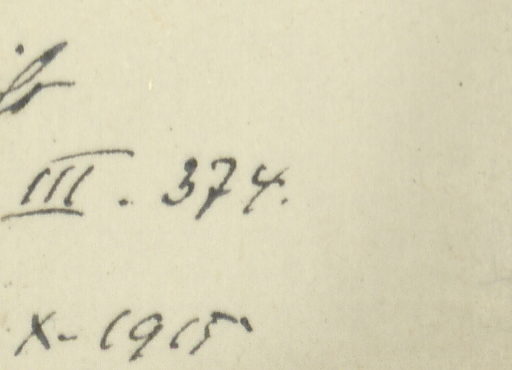 III. 374.
X-1915